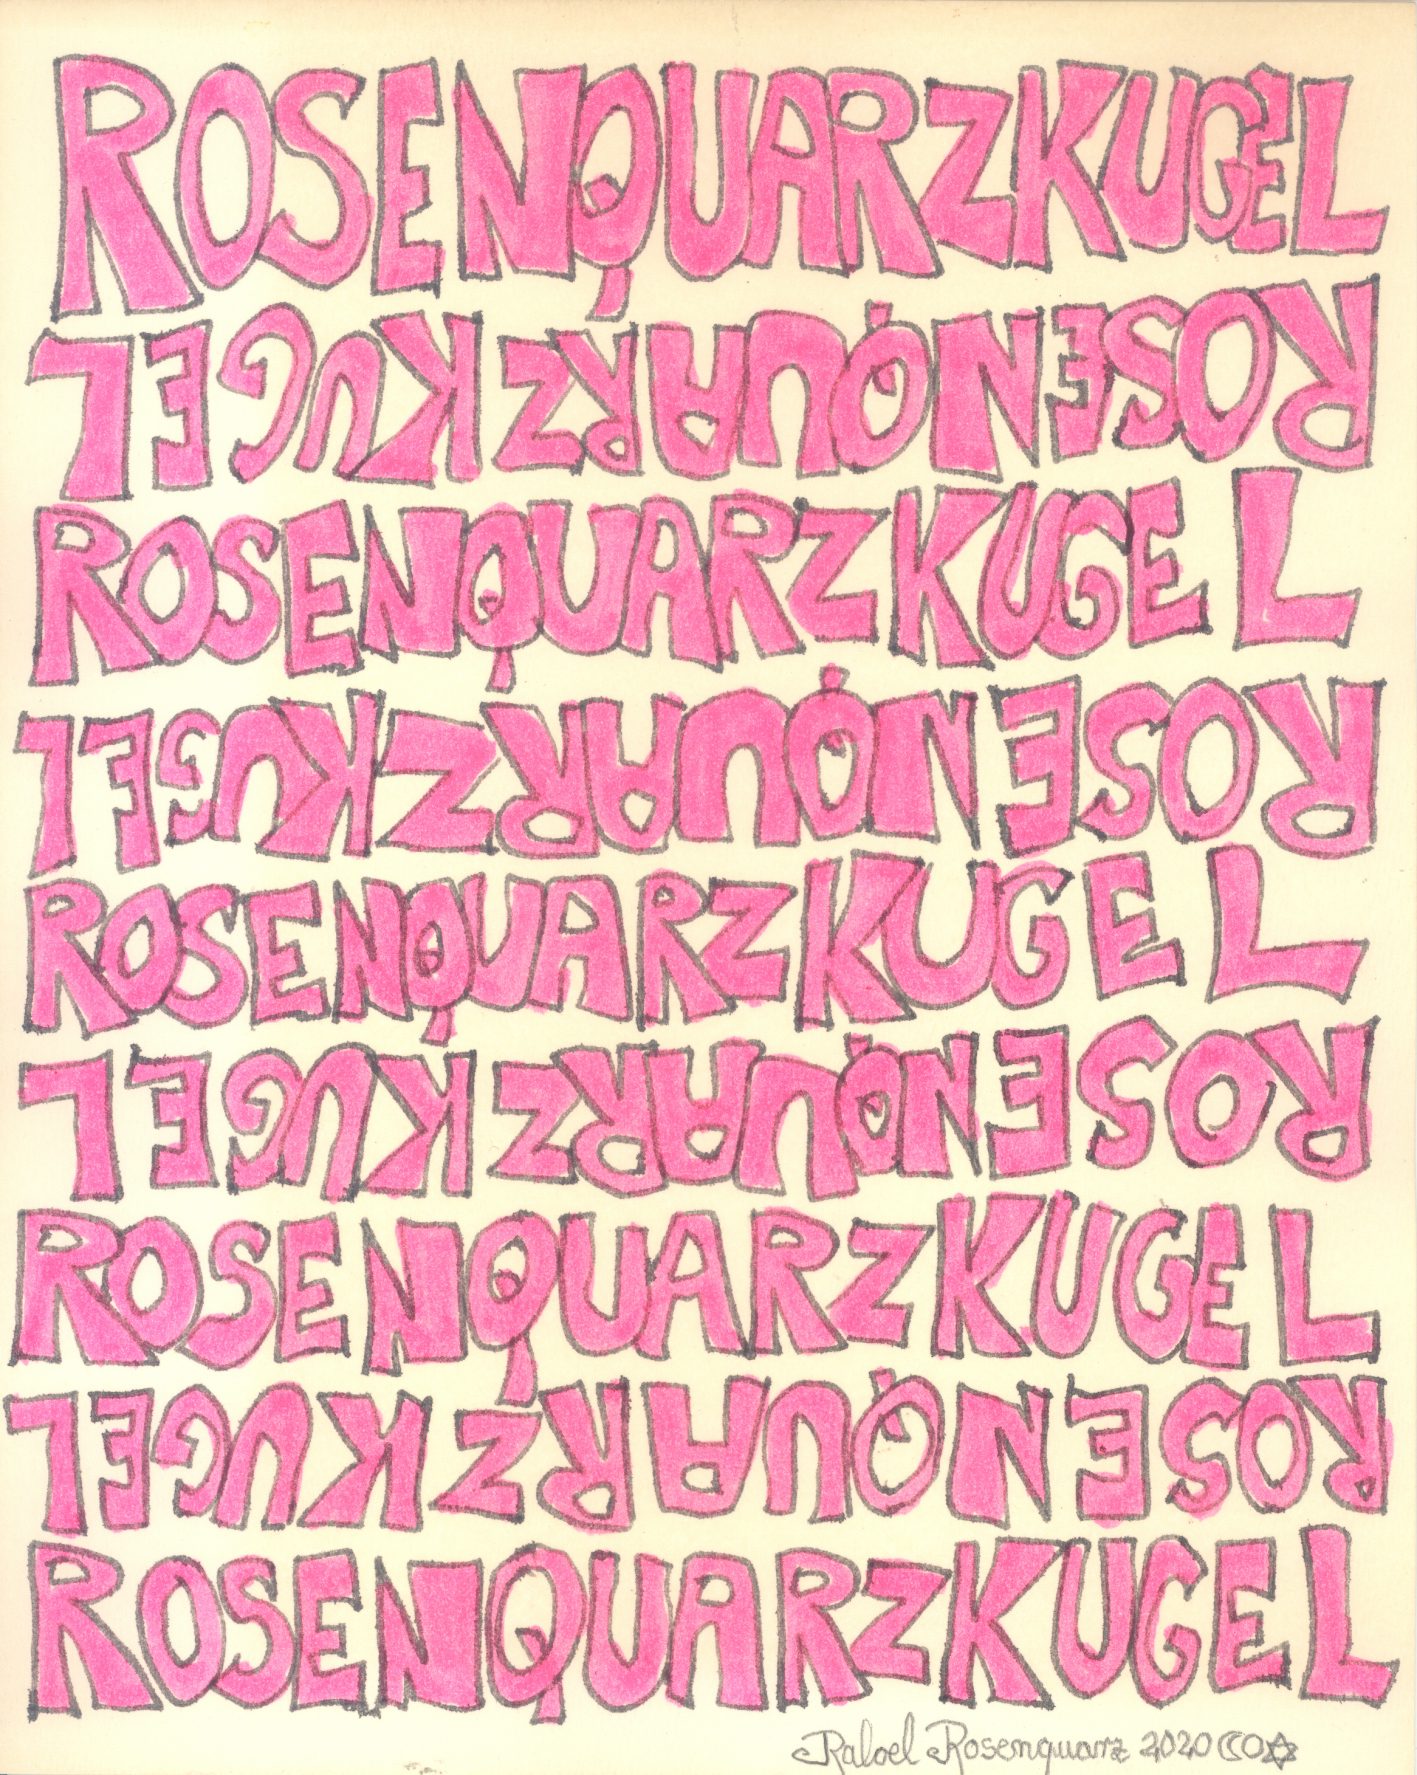 ROSENQUARZKUGEL
ROSENQUARZKUGEL
ROSENQUARZKUGEL
ROSENQUARZKUGEL
ROSENQUARZKUGEL
ROSENQUARZKUGEL
ROSENQUARZKUGEL
ROSENQUARZKUGEL
ROSENQUARZKUGEL
Raloel Rosenquarz 2020